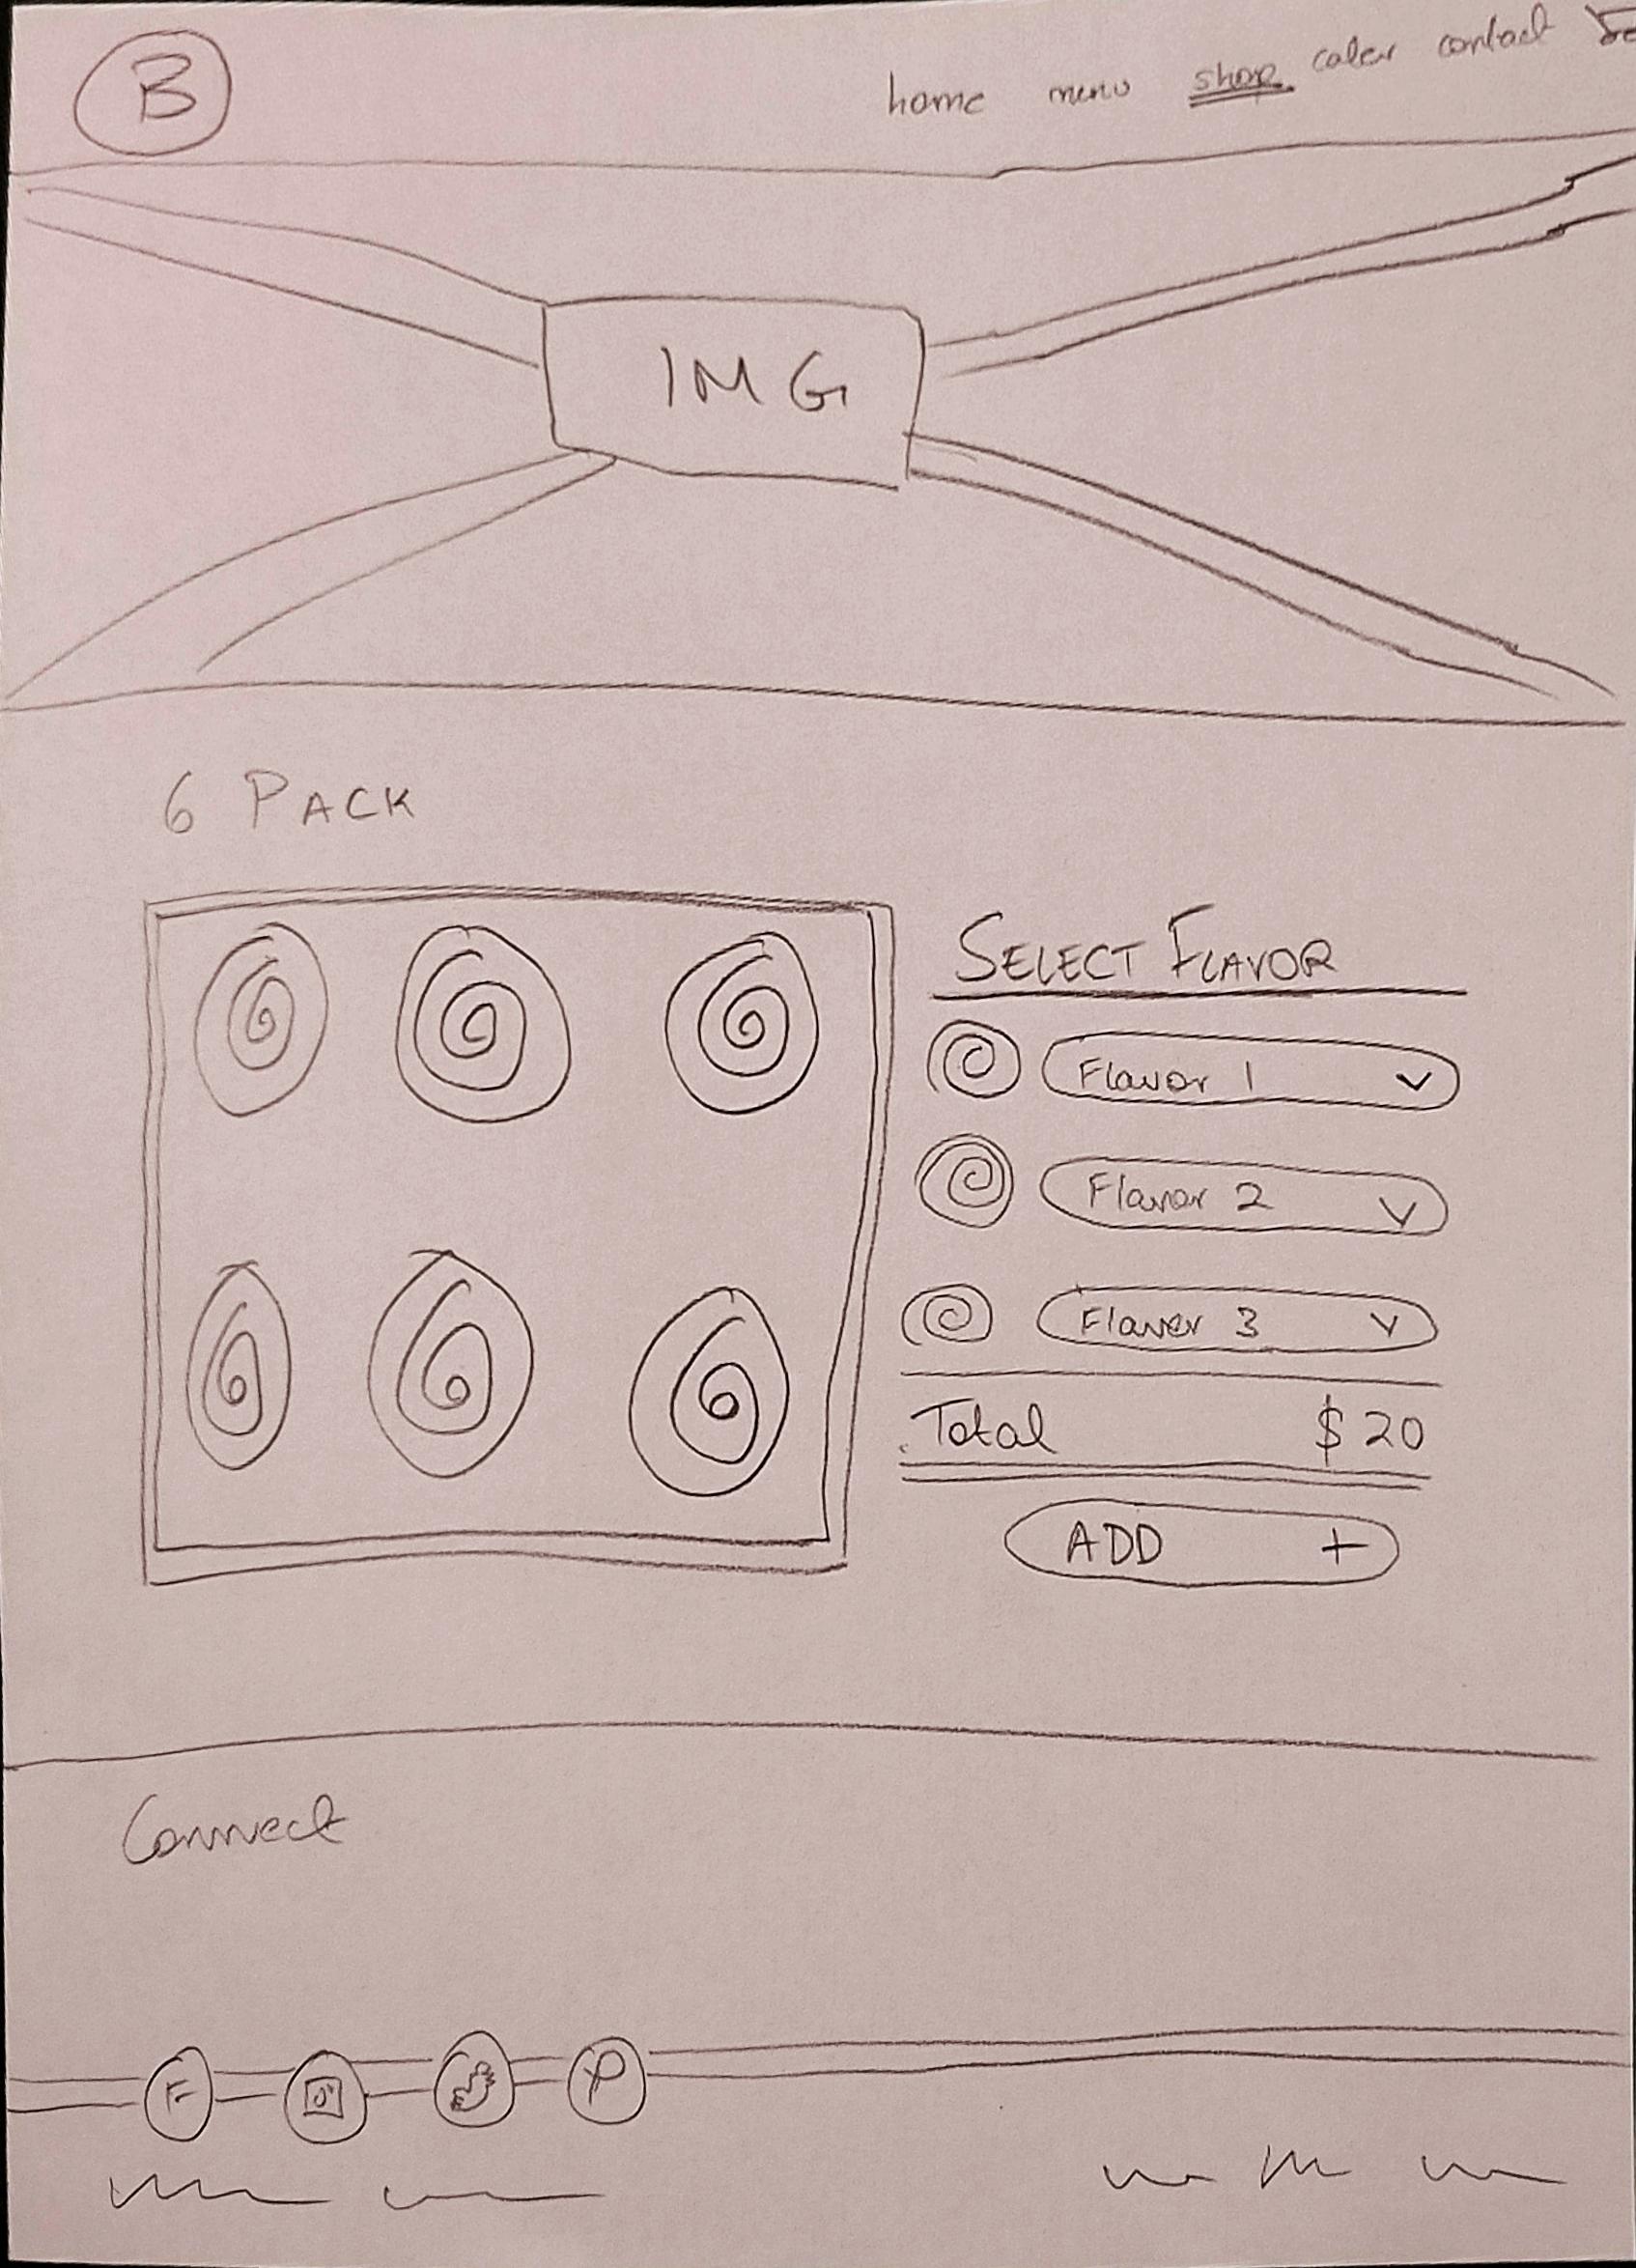 B
home menu shop cater contact
IMG
6 PACK
SELECT FLAVOR
Flavor 1
Flavor 2
Flaver 3
Total $20
ADD +
Connect
F
P